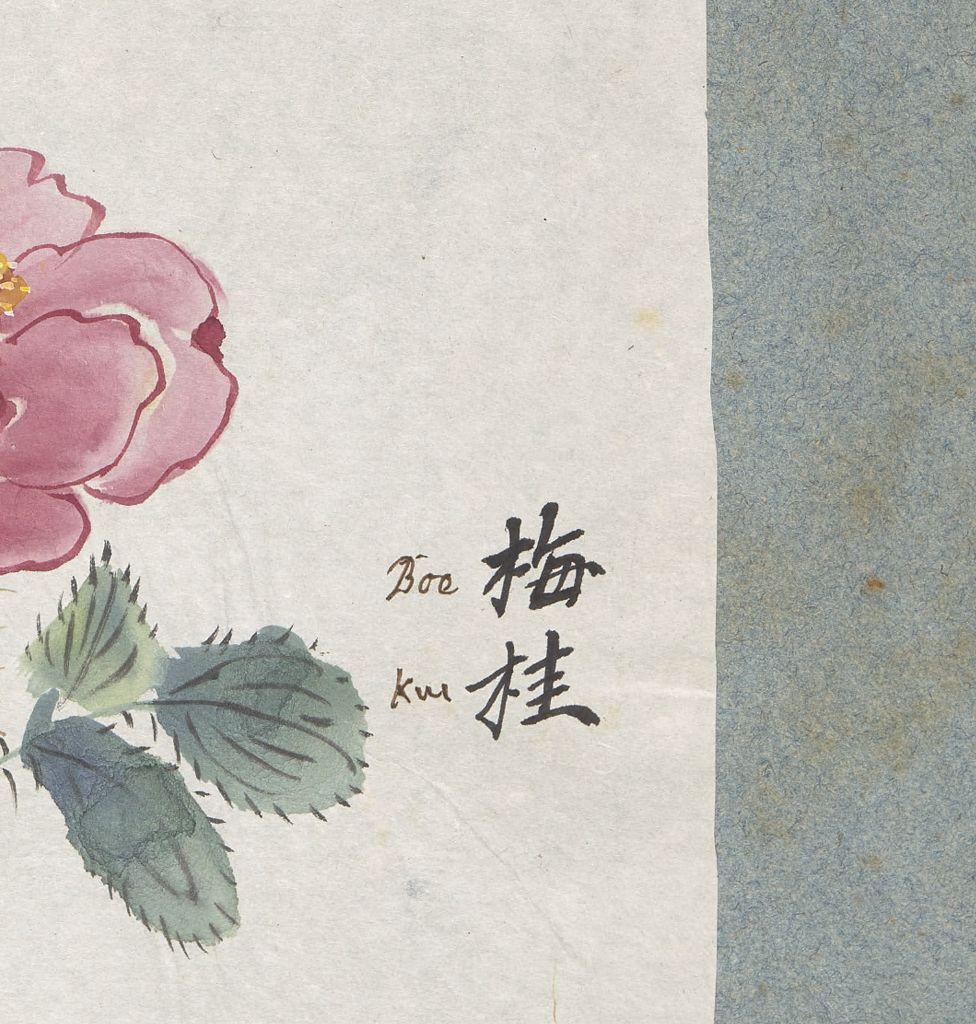 Boe 梅
Kui 桂